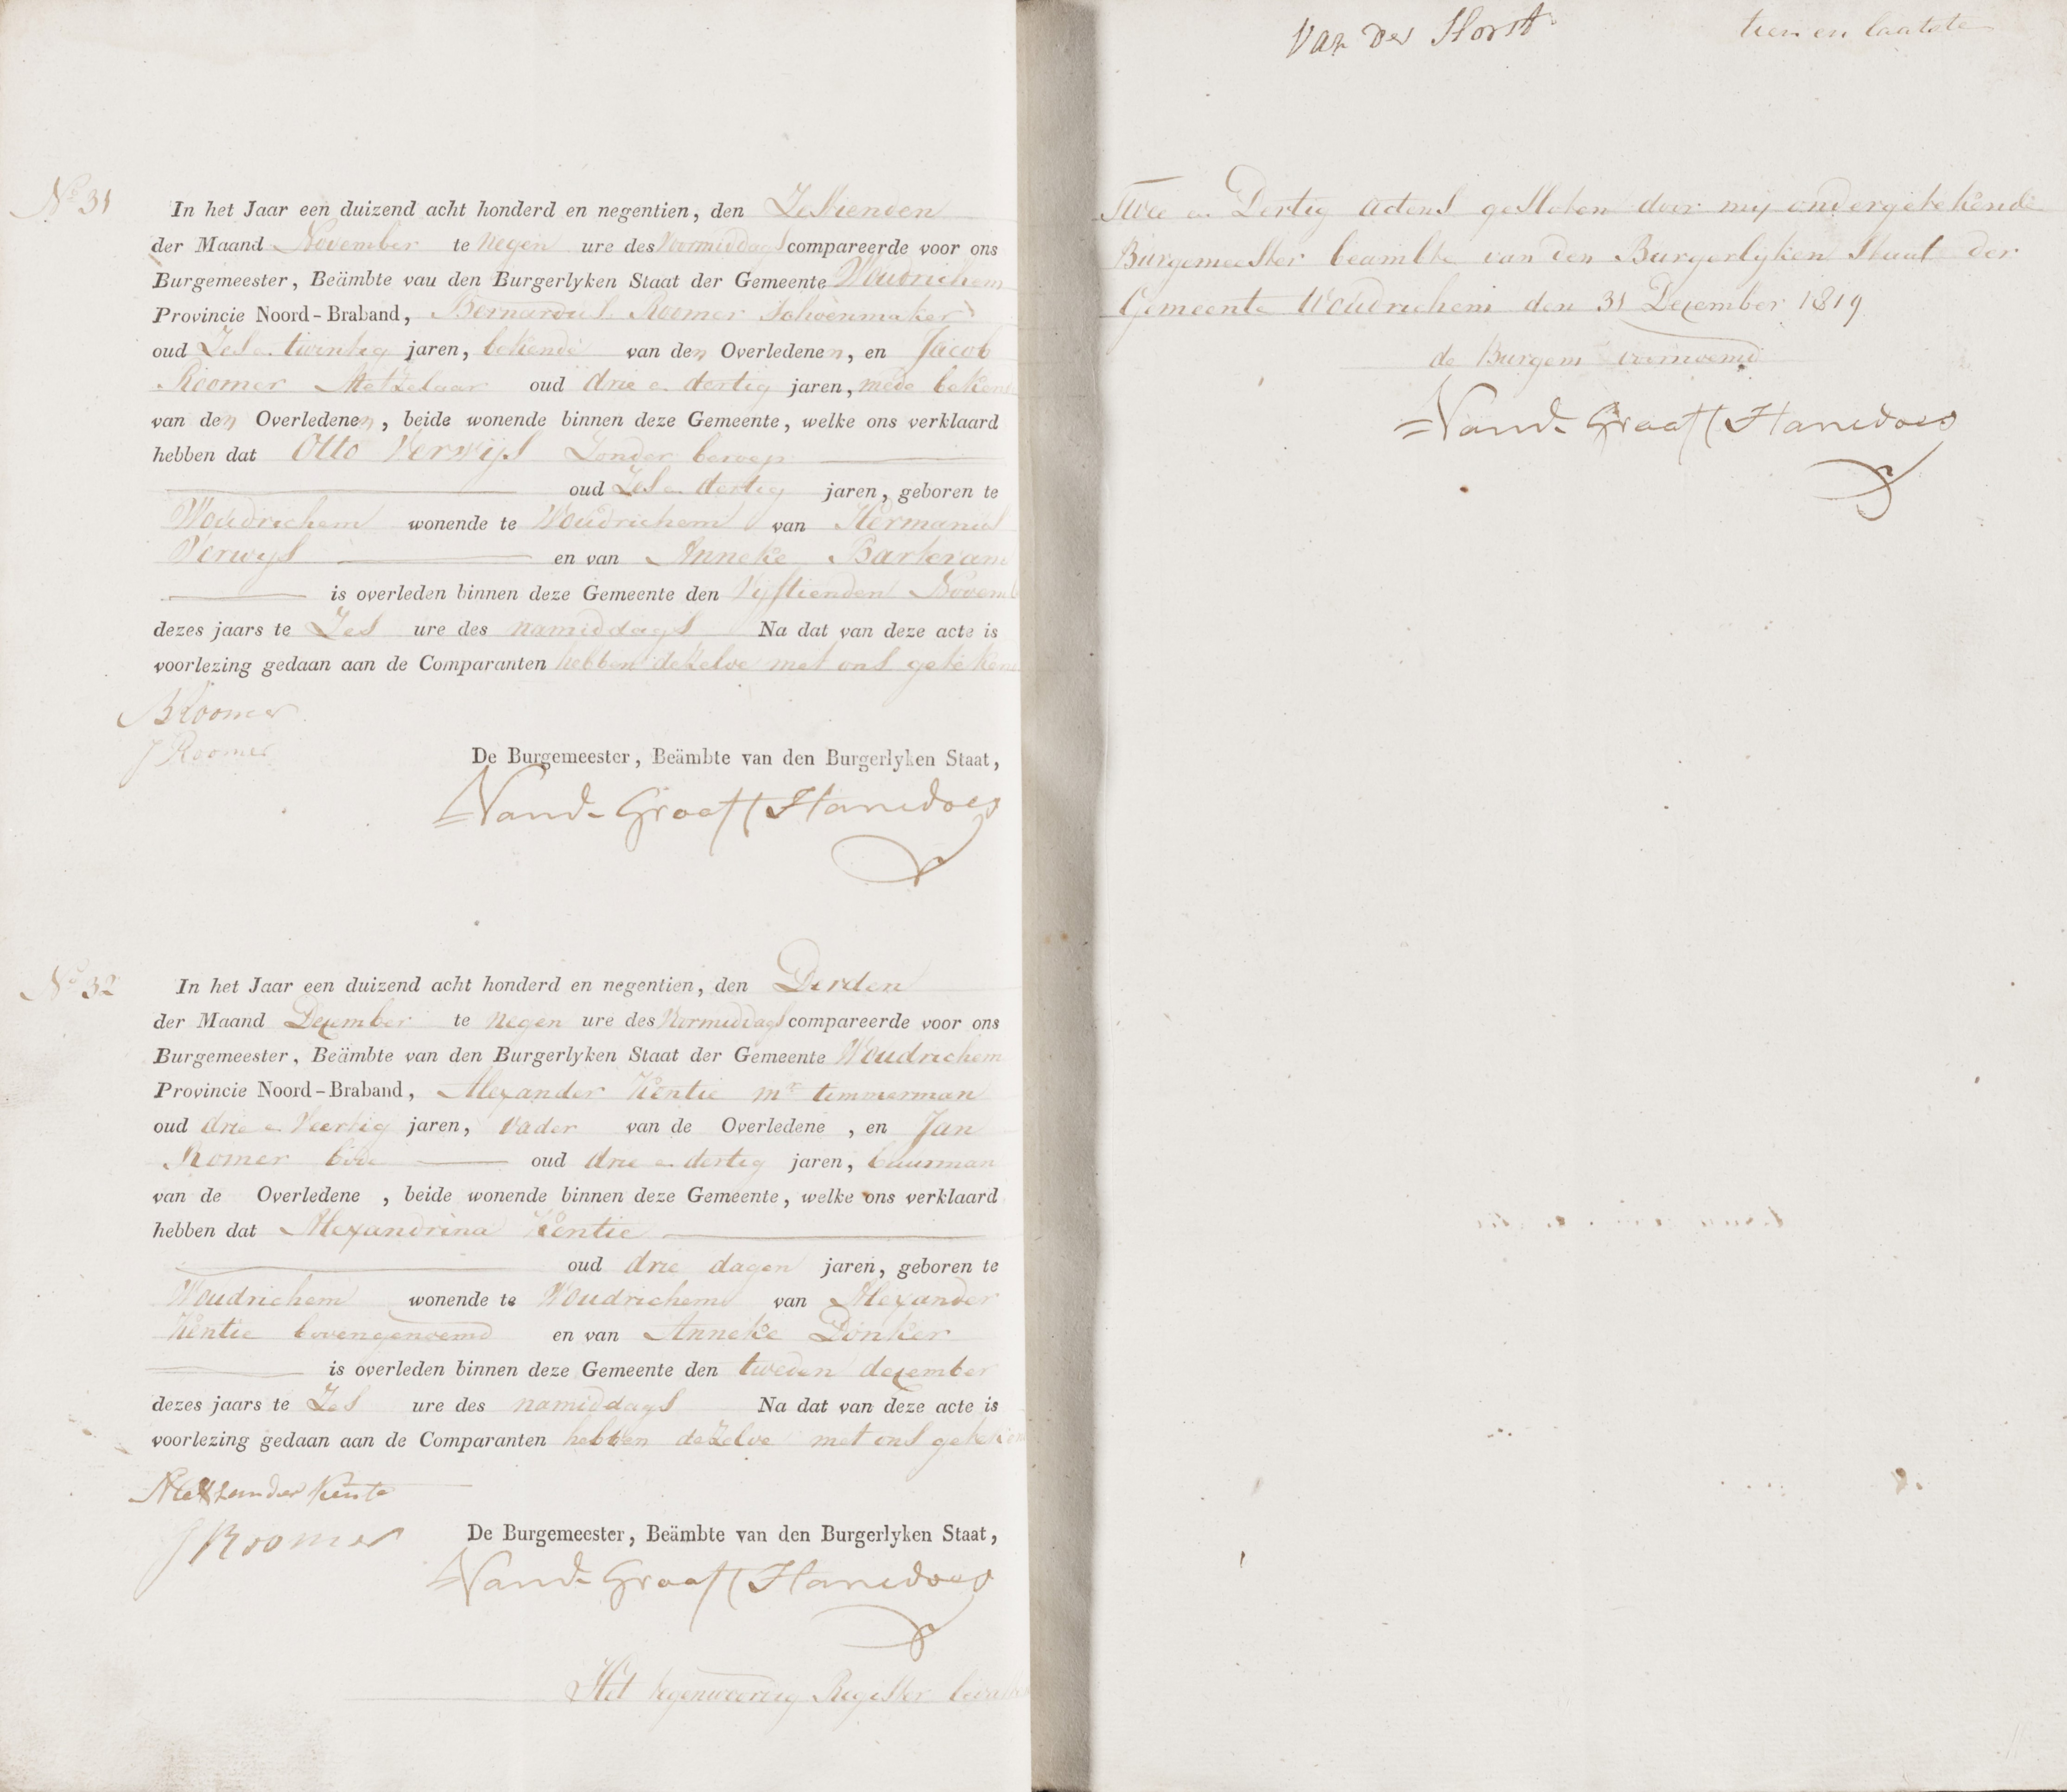 No 31
In het Jaar een duizend acht honderd en negentien, den Zestienden
der Maand November te Negen ure des Voormiddags compareerde voor ons
Burgemeester, Beämbte vau den Burgerlyken Staat der Gemeente Woudrichem
Provincie Noord-Braband, Bernardus Roomer Schoenmaker
oud Zes en twintig jaren, bekende van den Overledenen, en Jacob
Roomer Metzelaar oud drie en dertig jaren, mede bekende
van den Overledenen, beide wonende binnen deze Gemeente, welke ons verklaard
hebben dat Otto Verwijs Zonder beroep
oud Zes en dertig jaren, geboren te
Woudrichem wonende te Woudrichem van Hermanus
Verwijs en van Anneke Barteram
is overleden binnen deze Gemeente den Vijftienden Novemb
dezes jaars te Zes ure des namiddags Na dat van deze acte is
voorlezing gedaan aan de Comparanten hebben dezelve met ons getekend
B Roomer
J Roomer
De Burgemeester, Beämbte van den Burgerlyken Staat,
Vand Graaff Hanedoes
No 32
In het Jaar een duizend acht honderd en negentien, den Derden
der Maand December te Negen ure des Vormiddags compareerde voor ons
Burgemeester, Beämbte van den Burgerlyken Staat der Gemeente Woudrichem
Provincie Noord-Braband, Alexander Kentie mr timmerman
oud drie en Veertig jaren, Vader van de Overledene, en Jan
Romer bode oud drie en dertig jaren, buurman
van de Overledene, beide wonende binnen deze Gemeente, welke ons verklaard
hebben dat Alexandrina Kentie
oud drie dagen jaren, geboren te
Woudrichem wonende te Woudrichem van Alexander
Kentie bovengenoemd en van Anneke Donker
is overleden binnen deze Gemeente den tweden december
dezes jaars te Zes ure des namiddags Na dat van deze acte is
voorlezing gedaan aan de Comparanten hebben dezelve met ons geteken
Alexzander Kente
J Roomer
De Burgemeester, Beämbte van den Burgerlyken Staat,
Vand Graaff Hanedoes
Het tegenwoordig Register bevatten
Van der Horst tien en laatste
Twee en Dertig actens gesloten door mij ondergetekende
Burgemeester beambte van den Burgerlijken Staat der
Gemeente Woudrichem den 31 December 1819
de Burgem voornoemd
Vand Graaff Hanedoes